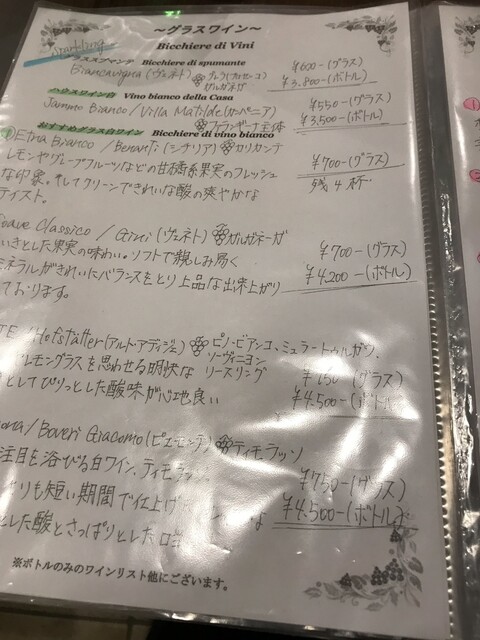 ～グラスワイン～
Bicchiere di Vini
Sparkling
グラススプマンテ Bicchiere di spumante
Biancavigna (ヴェネト) グレラ(プロセッコ) ¥600-(グラス)
ガルガネガ ¥3,800-(ボトル)
ハウスワイン白 Vino bianco della Casa
Sammo Bianco / Villa Matilde (カンパニア) ¥550-(グラス)
ファランギーナ主体 ¥3,500-(ボトル)
おすすめグラス白ワイン Bicchiere di vino bianco
① Etna Bianco / Benanti (シチリア) カリカンテ
レモンやグレープフルーツなどの柑橘系果実のフレッシュ ¥700-(グラス)
な印象。そしてクリーンできれいな酸の爽やかな 残4杯
テイスト。
Soave Classico / Gini (ヴェネト) ガルガネーガ
いきとした果実の味わい。ソフトで親しみ易く ¥700-(グラス)
ミネラルがきれいにバランスをとり上品な出来上がり ¥4,200-(ボトル)
ております。
TE / Hofstätter (アルト・アディジェ) ピノ・ビアンコ、ミュラー・トゥルガウ、
ソーヴィニヨン
レモングラスを思わせる明快な リースリング ¥750-(グラス)
としてぴりっとした酸味が心地良い ¥4,500-(ボトル
ona / Boveri Giacomo (ピエモンテ) ティモラッソ
注目を浴びる白ワイン、ティモラッソ ¥750-(グラス)
りも短い期間で仕上げ ¥4,500-(ボトル)
とした酸とさっぱりとした口
※ボトルのみのワインリスト他にございます。